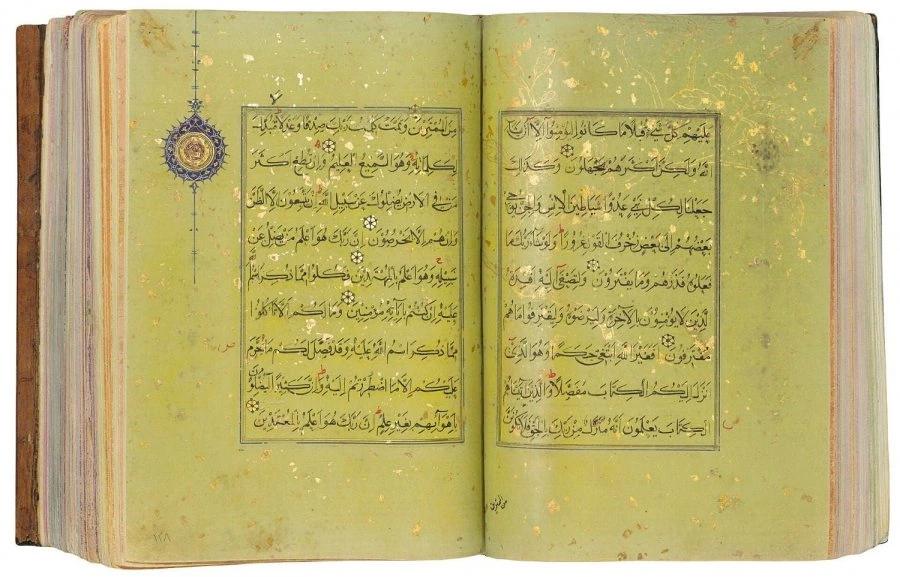 عليهم كل شيء قبلا ما كانوا ليؤمنوا الا ان يشاء
الله ولكن اكثرهم يجهلون وكذلك
جعلنا لكل نبي عدوا شياطين الانس والجن يوحي
بعضهم الى بعض زخرف القول غرورا ولو شاء ربك ما
فعلوه فذرهم وما يفترون ولتصغى اليه افئدة
الذين لا يؤمنون بالآخرة وليرضوه وليقترفوا ما هم
مقترفون افغير الله ابتغي حكما وهو الذي
انزل اليكم الكتاب مفصلا والذين آتيناهم
الكتاب يعلمون انه منزل من ربك بالحق فلا تكونن
من الممترين
من الممترين وتمت كلمت ربك صدقا وعدلا لا مبدل
لكلماته وهو السميع العليم وان تطع اكثر
من في الارض يضلوك عن سبيل الله ان يتبعون الا الظن
وان هم الا يخرصون ان ربك هو اعلم من يضل عن
سبيله وهو اعلم بالمهتدين فكلوا مما ذكر اسم الله
عليه ان كنتم بآياته مؤمنين وما لكم الا تأكلوا
مما ذكر اسم الله عليه وقد فصل لكم ما حرم
عليكم الا ما اضطررتم اليه وان كثيرا ليضلون
باهوائهم بغير علم ان ربك هو اعلم بالمعتدين
١٢٨